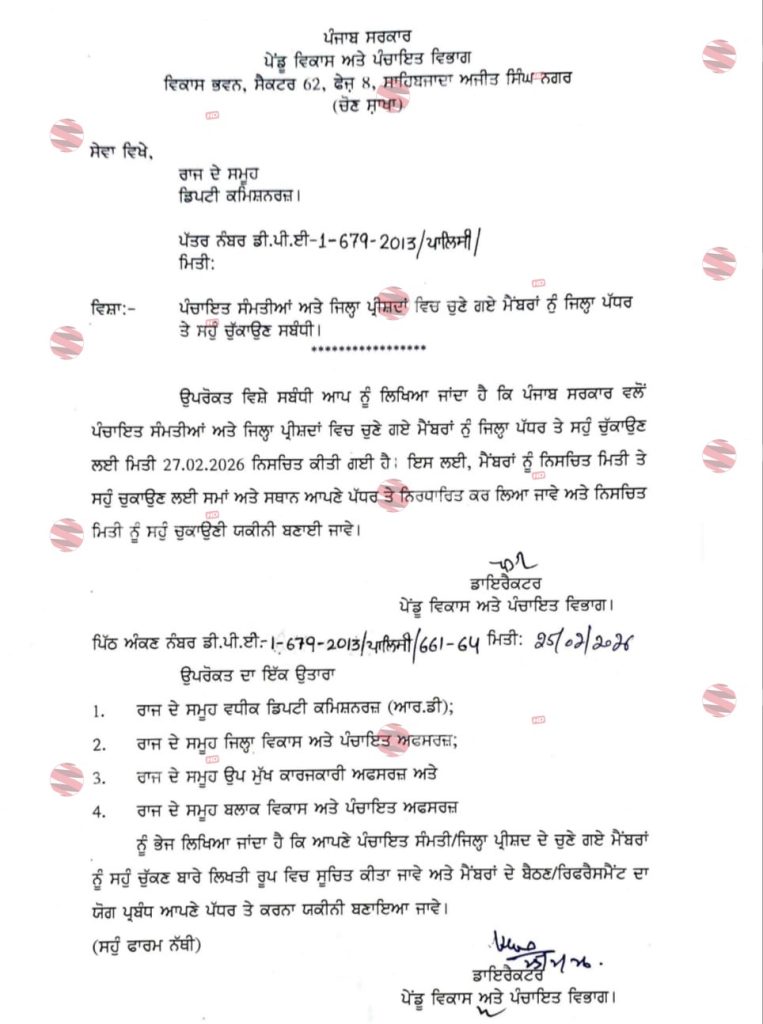 ਪੰਜਾਬ ਸਰਕਾਰ
ਪੇਂਡੂ ਵਿਕਾਸ ਅਤੇ ਪੰਚਾਇਤ ਵਿਭਾਗ
ਵਿਕਾਸ ਭਵਨ, ਸੈਕਟਰ 62, ਫੇਜ਼ 8, ਸਾਹਿਬਜਾਦਾ ਅਜੀਤ ਸਿੰਘ ਨਗਰ
(ਚੋਣ ਸ਼ਾਖਾ)
ਸੇਵਾ ਵਿਖੇ,
ਰਾਜ ਦੇ ਸਮੂਹ
ਡਿਪਟੀ ਕਮਿਸ਼ਨਰਜ਼।
ਪੱਤਰ ਨੰਬਰ ਡੀ.ਪੀ.ਈ-1-679-2013/ਪਾਲਿਸੀ/
ਮਿਤੀ:
ਵਿਸ਼ਾ:- ਪੰਚਾਇਤ ਸੰਮਤੀਆਂ ਅਤੇ ਜਿਲ੍ਹਾ ਪ੍ਰੀਸ਼ਦਾਂ ਵਿਚ ਚੁਣੇ ਗਏ ਮੈਂਬਰਾਂ ਨੂੰ ਜਿਲ੍ਹਾ ਪੱਧਰ
ਤੇ ਸਹੁੰ ਚੁੱਕਾਉਣ ਸਬੰਧੀ।
*****************
ਉਪਰੋਕਤ ਵਿਸ਼ੇ ਸਬੰਧੀ ਆਪ ਨੂੰ ਲਿਖਿਆ ਜਾਂਦਾ ਹੈ ਕਿ ਪੰਜਾਬ ਸਰਕਾਰ ਵਲੋਂ
ਪੰਚਾਇਤ ਸੰਮਤੀਆਂ ਅਤੇ ਜਿਲ੍ਹਾ ਪ੍ਰੀਸ਼ਦਾਂ ਵਿਚ ਚੁਣੇ ਗਏ ਮੈਂਬਰਾਂ ਨੂੰ ਜਿਲ੍ਹਾ ਪੱਧਰ ਤੇ ਸਹੁੰ ਚੁੱਕਾਉਣ
ਲਈ ਮਿਤੀ 27.02.2026 ਨਿਸਚਿਤ ਕੀਤੀ ਗਈ ਹੈ। ਇਸ ਲਈ, ਮੈਂਬਰਾਂ ਨੂੰ ਨਿਸਚਿਤ ਮਿਤੀ ਤੇ
ਸਹੁੰ ਚੁਕਾਉਣ ਲਈ ਸਮਾਂ ਅਤੇ ਸਥਾਨ ਆਪਣੇ ਪੱਧਰ ਤੇ ਨਿਰਧਾਰਿਤ ਕਰ ਲਿਆ ਜਾਵੇ ਅਤੇ ਨਿਸਚਿਤ
ਮਿਤੀ ਨੂੰ ਸਹੁੰ ਚੁਕਾਉਣੀ ਯਕੀਨੀ ਬਣਾਈ ਜਾਵੇ।
ਡਾਇਰੈਕਟਰ
ਪੇਂਡੂ ਵਿਕਾਸ ਅਤੇ ਪੰਚਾਇਤ ਵਿਭਾਗ।
ਪਿੱਠ ਅੰਕਣ ਨੰਬਰ ਡੀ.ਪੀ.ਈ:-1-679-2013/ਪਾਲਿਸੀ/661-64 ਮਿਤੀ: 25/02/2026
ਉਪਰੋਕਤ ਦਾ ਇੱਕ ਉਤਾਰਾ
1. ਰਾਜ ਦੇ ਸਮੂਹ ਵਧੀਕ ਡਿਪਟੀ ਕਮਿਸ਼ਨਰਜ਼ (ਆਰ.ਡੀ);
2. ਰਾਜ ਦੇ ਸਮੂਹ ਜਿਲ੍ਹਾ ਵਿਕਾਸ ਅਤੇ ਪੰਚਾਇਤ ਅਫਸਰਜ਼;
3. ਰਾਜ ਦੇ ਸਮੂਹ ਉਪ ਮੁੱਖ ਕਾਰਜਕਾਰੀ ਅਫਸਰਜ਼ ਅਤੇ
4. ਰਾਜ ਦੇ ਸਮੂਹ ਬਲਾਕ ਵਿਕਾਸ ਅਤੇ ਪੰਚਾਇਤ ਅਫਸਰਜ਼
ਨੂੰ ਭੇਜ ਲਿਖਿਆ ਜਾਂਦਾ ਹੈ ਕਿ ਆਪਣੇ ਪੰਚਾਇਤ ਸੰਮਤੀ/ਜਿਲ੍ਹਾ ਪ੍ਰੀਸ਼ਦ ਦੇ ਚੁਣੇ ਗਏ ਮੈਂਬਰਾਂ
ਨੂੰ ਸਹੁੰ ਚੁੱਕਣ ਬਾਰੇ ਲਿਖਤੀ ਰੂਪ ਵਿਚ ਸੂਚਿਤ ਕੀਤਾ ਜਾਵੇ ਅਤੇ ਮੈਂਬਰਾਂ ਦੇ ਬੈਠਣ/ਰਿਫਰੈਸਮੈਂਟ ਦਾ
ਯੋਗ ਪ੍ਰਬੰਧ ਆਪਣੇ ਪੱਧਰ ਤੇ ਕਰਨਾ ਯਕੀਨੀ ਬਣਾਇਆ ਜਾਵੇ।
(ਸਹੁੰ ਫਾਰਮ ਨੱਥੀ)
ਡਾਇਰੈਕਟਰ
ਪੇਂਡੂ ਵਿਕਾਸ ਅਤੇ ਪੰਚਾਇਤ ਵਿਭਾਗ।